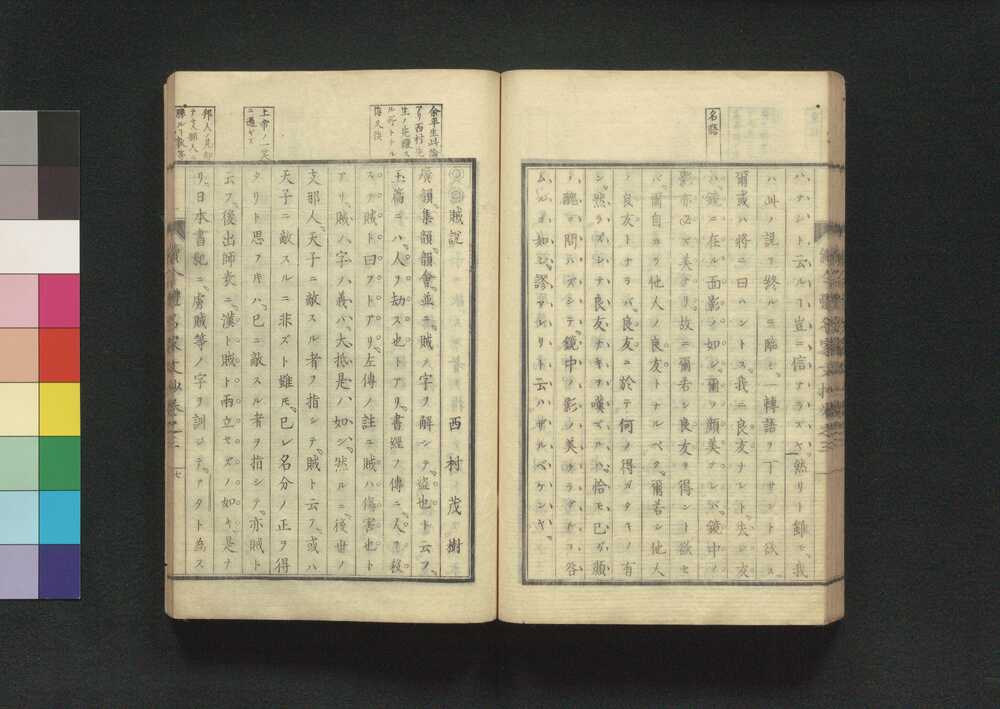 名喩
ハナシト云ルヿ豈ニ信ナラズヤ然リト雖モ我
ハ此ノ説ヲ終ルニ臨ミ一轉語ヲ下サント欲ス
爾或ハ將ニ曰ハントス我ニ良友ナシト夫レ友
ハ鏡ニ在ル面影ノ如シ爾ノ顔美ナレバ鏡中ノ
影亦必ズ美ナリ故ニ爾若シ良友ヲ得ント欲セ
バ爾自カラ他人ノ良友トナルベク爾若シ他人
ノ良友トナラバ良友ニ於テ何ノ得ガタキノ有
ン然ラズシテ良友ナキヲ嘆ズルハ恰モ己ガ顔
ノ醜ヲ問ハズシテ鏡中ノ影ノ美ナラザルヲ咎
ムルガ如シ謬アレリト云ハザルベケンヤ
賊説
西村茂樹
廣韻集韻韻會並ニ賊ノ字ヲ解シテ盗也ト云フ
玉篇ニハ人ヲ劫ス也トアリ書經ノ傳ニ人ヲ殺
スヲ賊ト曰フトアリ左傳ノ註ニ賊ハ傷害也ト
アリ賊ハ字ノ義ハ大抵是ノ如シ然ルニ後世ノ
支那人天子ニ敵スル者ヲ指シテ賊ト云フ或ハ
天子ニ敵スルニ非ズト雖モ己レ名分ノ正ヲ得
タリト思フ片ハ己ニ敵スル者ヲ指シテ亦賊ト
云フ後出師表ニ漢ト賊ト両立セズノ如キ是ナ
リ日本書紀ニ虜賊等ノ字ヲ訓シテアタト為ス
上帝ノ一笑
ニ過ギズ